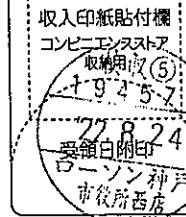 収入印紙貼付欄
コンビニエンスストア
収納用
領収⑤
19457
'22.8.24
受領日附印
ローソン神戸
市役所西店